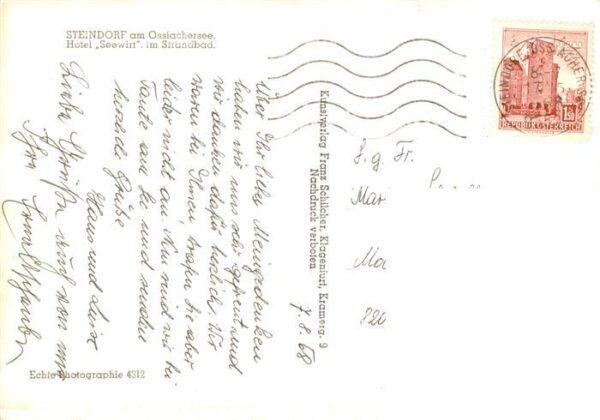 STEINDORF am Ossiachersee,
Hotel „Seewirt". im Strandbad.
REPUBLIK ÖSTERREICH
1.50
Kunstverlag Franz Schilcher, Klagenfurt, Kramerg. 9
Nachdruck verboten
7.8.68
Über Ihr liebes Meingedenken
haben wir uns sehr gefreut und
wir danken dafür herzlich. Wir
waren bei Ihnen, trafen Sie aber
leider nicht an. Nun sind wir bei
Tante am See und senden
herzliche Grüße
Hans und Luise
Liebe Grüße auch von
Ihrer
S. g. Fr.
Mar
Ma
820
Echte Photographie 4312